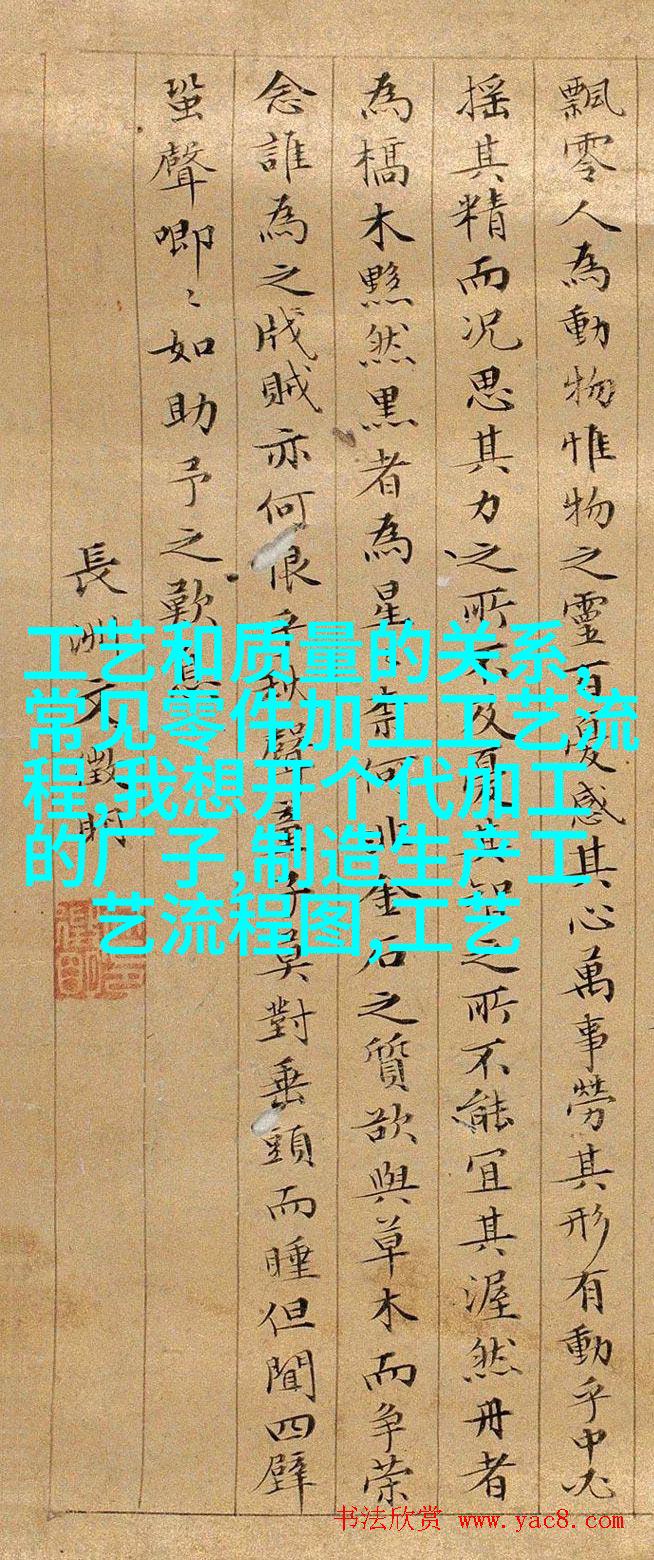 飄零人為動物惟物之靈百憂感其心萬事勞其形有動乎中必
搖其精而況思其力之所不及憂其智之所不能宜其渥然丹者
為槁木黟然黑者為星〻奈何非金石之質欲與草木而爭榮
念誰為之戕賊亦何恨乎秋聲童子莫對垂頭而睡但聞四壁
蛩聲唧〻如助予之歎息
長洲文徵明
工艺和质量的关系,
常见零件加工工艺流
程,我想开个代加工
的厂子,制造生产工
艺流程图,工艺
书法欣赏 www.yac8.com